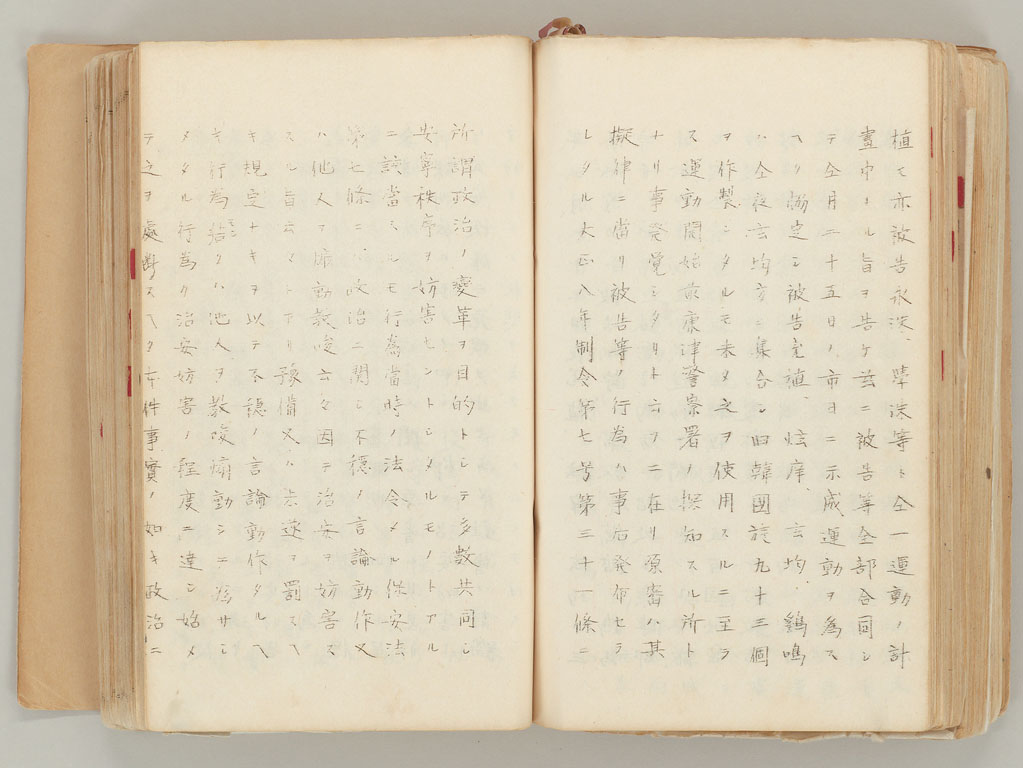 植モ亦被告永深、陸洙等ト仝一運動ノ計
畫中ナル旨ヲ告ケ茲ニ被告等全部合同シ
テ仝月二十五日ノ市日ニ示威運動ヲ為ス
ヘク協定シ被告宅植、炫庠、玄均、鷄鳴
ハ仝夜玄均方ニ集合シ旧韓國旗九十三個
ヲ作製シタルモ未タ之ヲ使用スルニ至ラ
ス運動開始前唐津警察署ノ探知スル所ト
ナリ事発覚シタリト云フニ在リ原審ハ其
擬律ニ當リ被告等ノ行為ハ事后発布セラ
レタル大正八年制令第七号第三十一條ニ
所謂政治ノ變革ヲ目的トシテ多數共同シ
安寧秩序ヲ妨害セントシタルモノトアル
ニ該當シルモ行為當時ノ法令タル保安法
第七條ニハ政治ニ関シ不穏ノ言論動作又
ハ他人ヲ煽動教唆云々因テ治安ヲ妨害ス
スル旨云々トアリ豫備又ハ未遂ヲ罰スヘ
キ規定ナキヲ以テ不穏ノ言論動作タルヘ
キ行為若クハ他人ヲ教唆煽動シニ為サシ
メタル行為カ治安妨害ノ程度ニ達シ始メ
テ之ヲ處断スヘク本件事實ノ如キ政治ニ